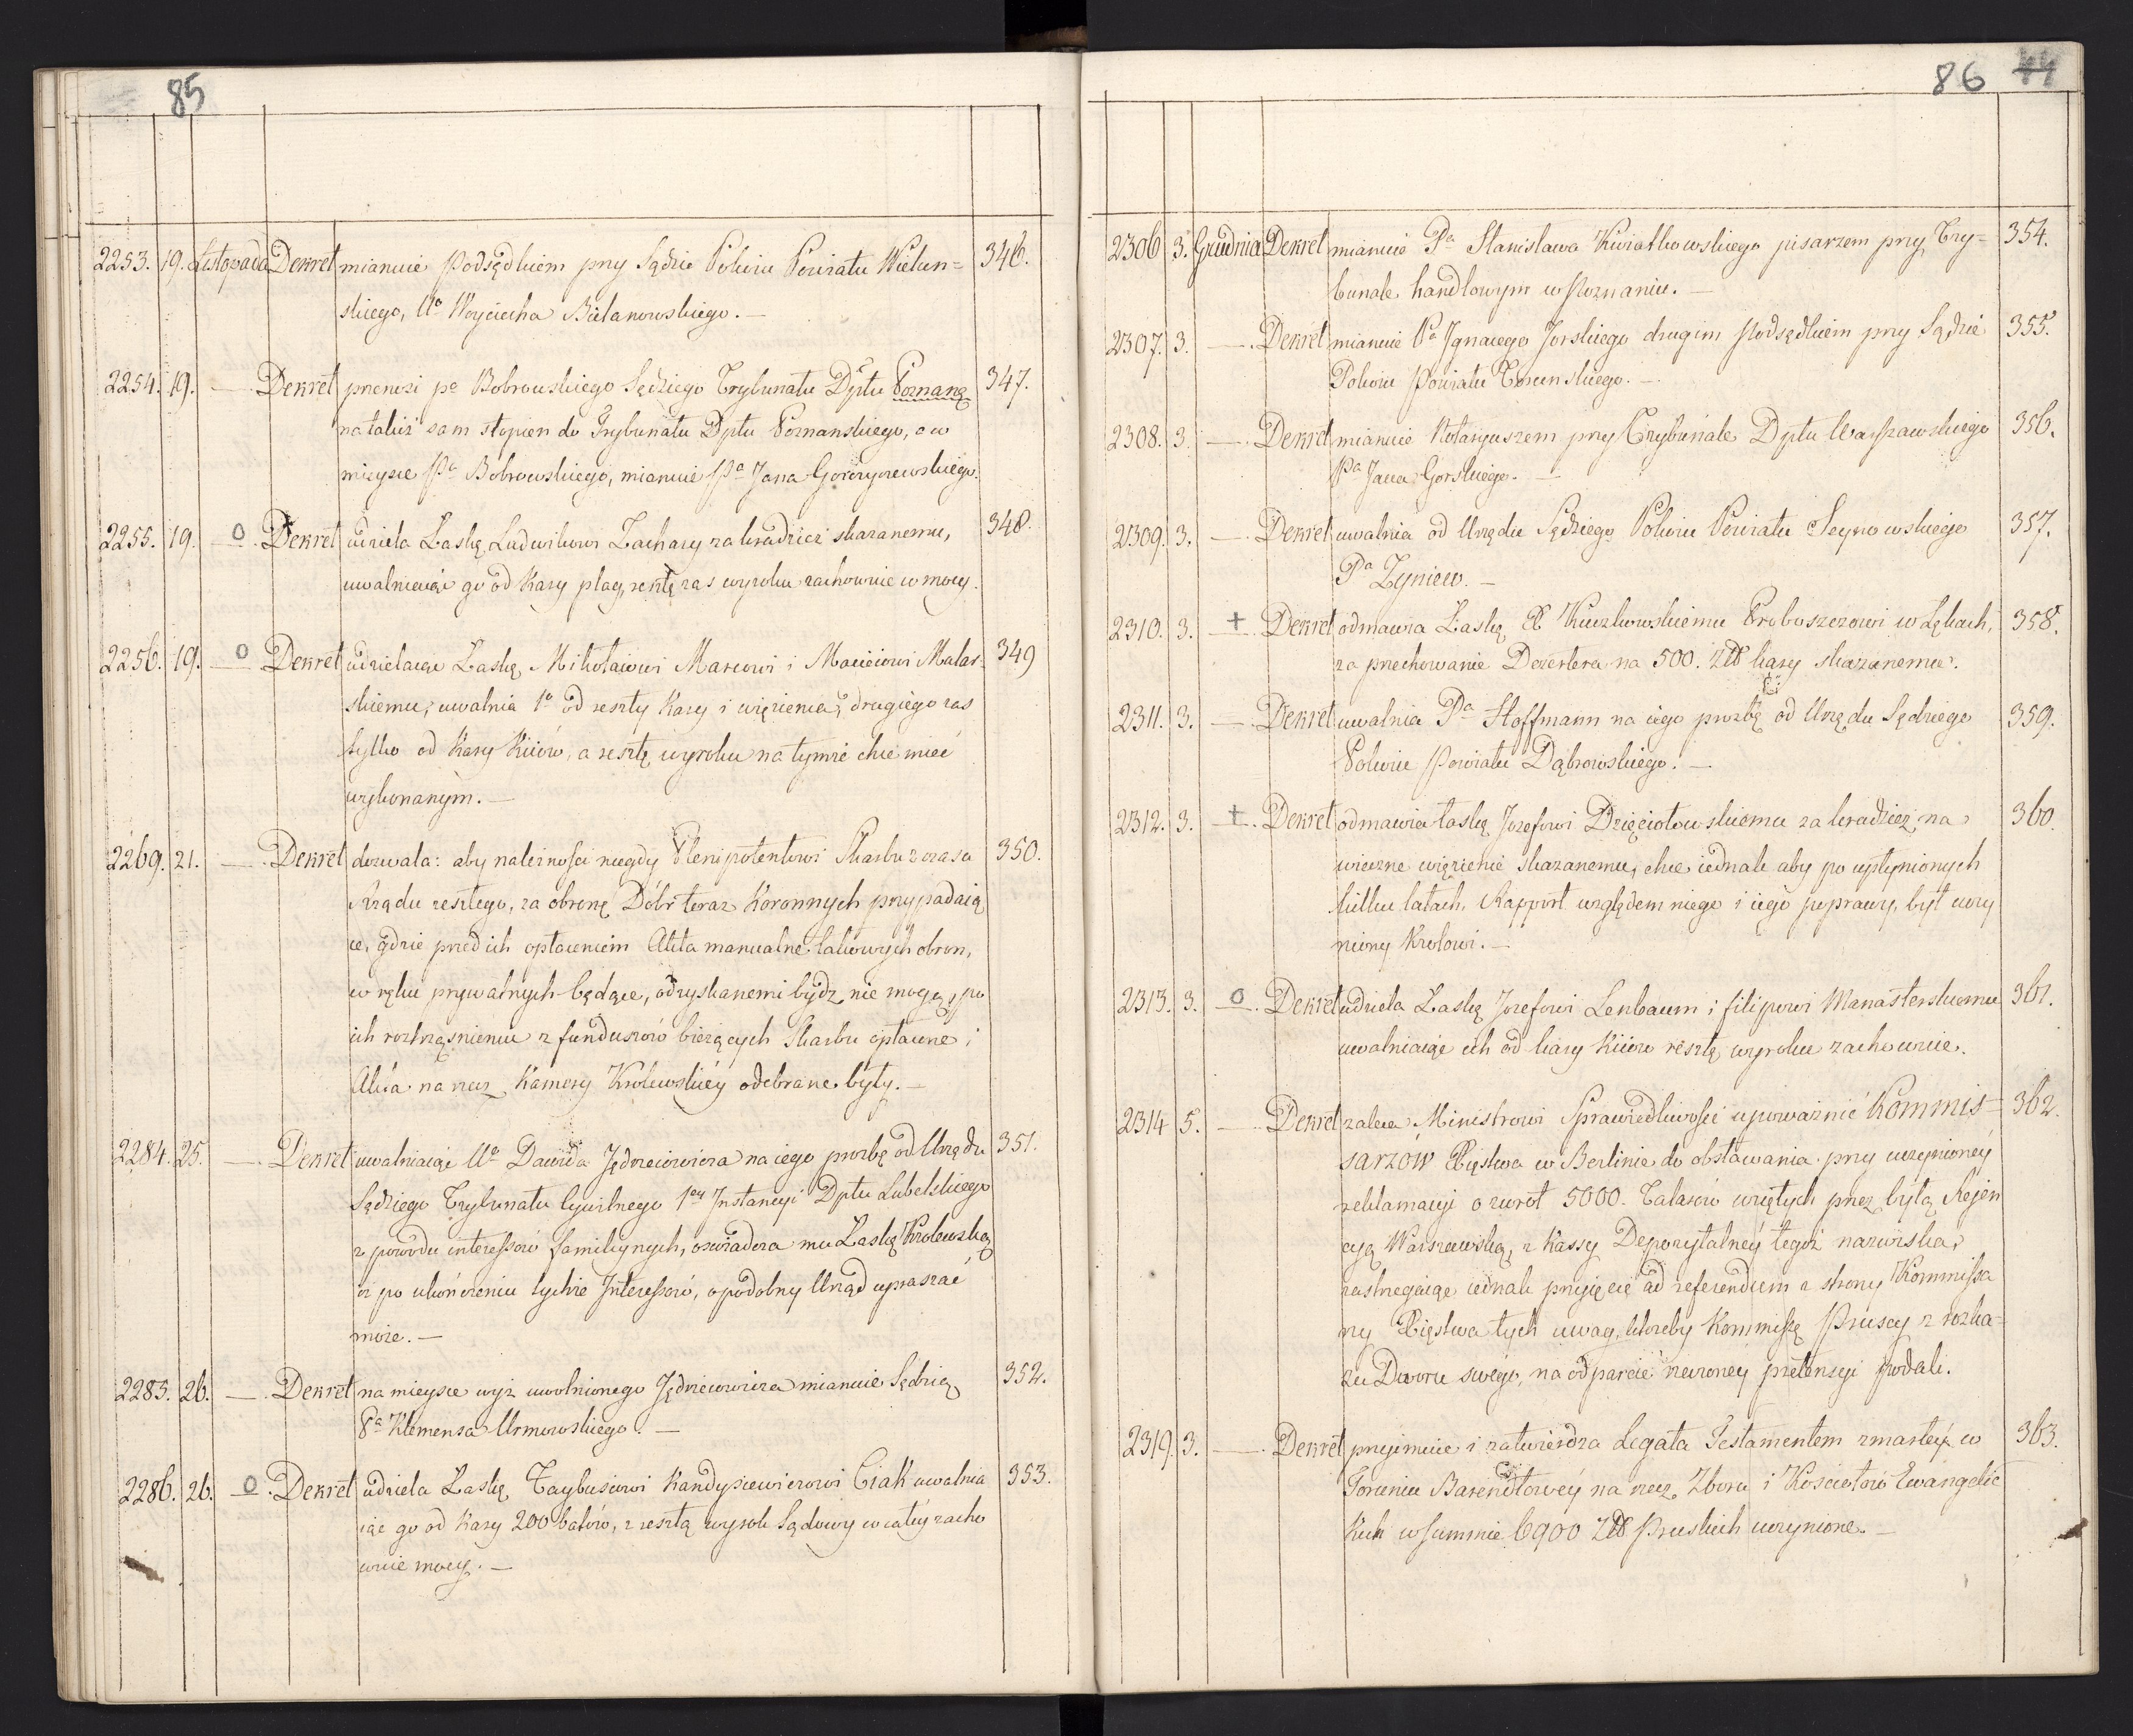 85
2253. 19. Listopada Dekret mianuie Podsędkiem przy Sądzie Pokoiu Powiatu Wielun= 346.
skiego, Uo Woyciecha Bielanowskiego. —
2254. 19. — Dekret przenosi pa Bobrowskiego Sędziego Trybunału Dptu Poznang 347.
na takiż sam stopien do Trybunału Dptu Poznanskiego, a w
mieysce Pa Bobrowskiego, mianuie Pa Jana Gorczyczewskiego.
2255. 19. — o Dekret udziela Łaskę Ludwikowi Zachary za kradzież skazanemu, 348.
uwalniaiąc go od Kary plag, resztę zas wyroku zachowuie w mocy.
2256. 19. — o Dekret udzielaiąc Łaskę Mikołaiowi Marcowi i Macieiowi Malar= 349
skiemu, uwalnia 1o od reszty Kary i więzienia, drugiego zas
tylko od Kary Kiiów, a resztę wyroku na tymże chce mieć
wykonanym. —
2269. 21. — Dekret dozwala: aby należnosci niegdy Plenipotentowi Skarbu z czasu 350.
Rządu zeszłego, za obronę Dóbr teraz Koronnych przypadaią
ce, gdzie przed ich opłaceniem Akta manualne takowych obron,
w ręku prywatnych będące, odzyskanemi bydz nie mogą, po
ich roztrząsnieniu z funduszów bieżących Skarbu opłacone i
Akta na rzecz Kamery Krolewskiey odebrane były. —
2284. 25. — Dekret uwalniaiąc Uo Dawida Jędrzeiewicza na iego prozbę od Urzędu 351.
Sędziego Trybunału Cywilnego 1ey Instancyi Dptu Lubelskiego
z powodu interessów familiynych, oswiadcza mu Łaskę Krolewską
iż po ukończeniu tychże Interessów, o podobny Urząd upraszać
może. —
2285. 26. — Dekret na mieysce wyż uwolnionego Jędrzeiewicza mianuie Sędzią 352.
Pa Klemensa Urmowskiego. —
2286. 26. — o Dekret udziela Łaskę Taybusiowi Kandysiewiczowi Ciak uwalnia 353.
iąc go od Kary 200 batów, z resztą wyrok Sądowy w całey zacho
wuie mocy. —
86 44
2306 3. Grudnia Dekret mianuie Pa Stanisława Kwiatkowskiego pisarzem przy Try= 354.
bunale handlowym w Poznaniu. —
2307. 3. — Dekret mianuie Pa Ignacego Jorskiego drugim Podsędkiem przy Sądzie 355.
Pokoiu Powiatu Torunskiego. —
2308. 3. — Dekret mianuie Notaryuszem przy Trybunale Dptu Warszawskiego 356.
Pa Jana Gorskiego. —
2309. 3. — Dekret uwalnia od Urzędu Sędziego Pokoiu Powiatu Seynowskiego 357.
Pa Zyniew. —
2310. 3. — + Dekret odmawia Łaskę X Kuczkowskiemu Proboszczowi w Łękach, 358.
za przechowanie Dezertera na 500. Złł kary skazanemu.
2311. 3. — Dekret uwalnia Pa Hoffmann na iego prozbę od Urzędu Sędziego 359.
Pokoiu Powiatu Dąbrowskiego. —
2312. 3. — + Dekret odmawia łaskę Jozefowi Dzięciołowskiemu za kradzież na 360.
wieczne więzienie skazanemu, chce iednak aby po upłynionych
kilku latach, Rapport względem niego i iego poprawy, był uczy
niony Krolowi. —
2313. 3. — o Dekret udziela Łaskę Jozefowi Lenbaum i filipowi Manasterskiemu 361.
uwalniaiąc ich od kary Kiiow resztę wyroku zachowuie.
2314 5. — Dekret zaleca Ministrowi Sprawiedliwości upoważnić Kommis= 362.
sarzów Xięstwa w Berlinie do obstawania przy uczynioney
reklamacyi o zwrot 5000. Talarów wziętych przez byłą Rejen
cyą Warszawską, z Kassy Depozytalney tegoż nazwiska,
zastrzegaiąc iednak przyięcie ad referendum z strony Kommissa
rzy Xięstwa tych uwag, któreby Kommissą Pruscy z rozka=
zu Dworu swego, na odparcie rzeczoney pretensyi podali.
2319. 3. — Dekret przyimuie i zatwierdza Legata Testamentem zmarłey w 363.
Toruniu Barendtowey na rzecz Zboru i Kościołów Ewangelic
kich w summie 6900 Złł Pruskich uczynione. —